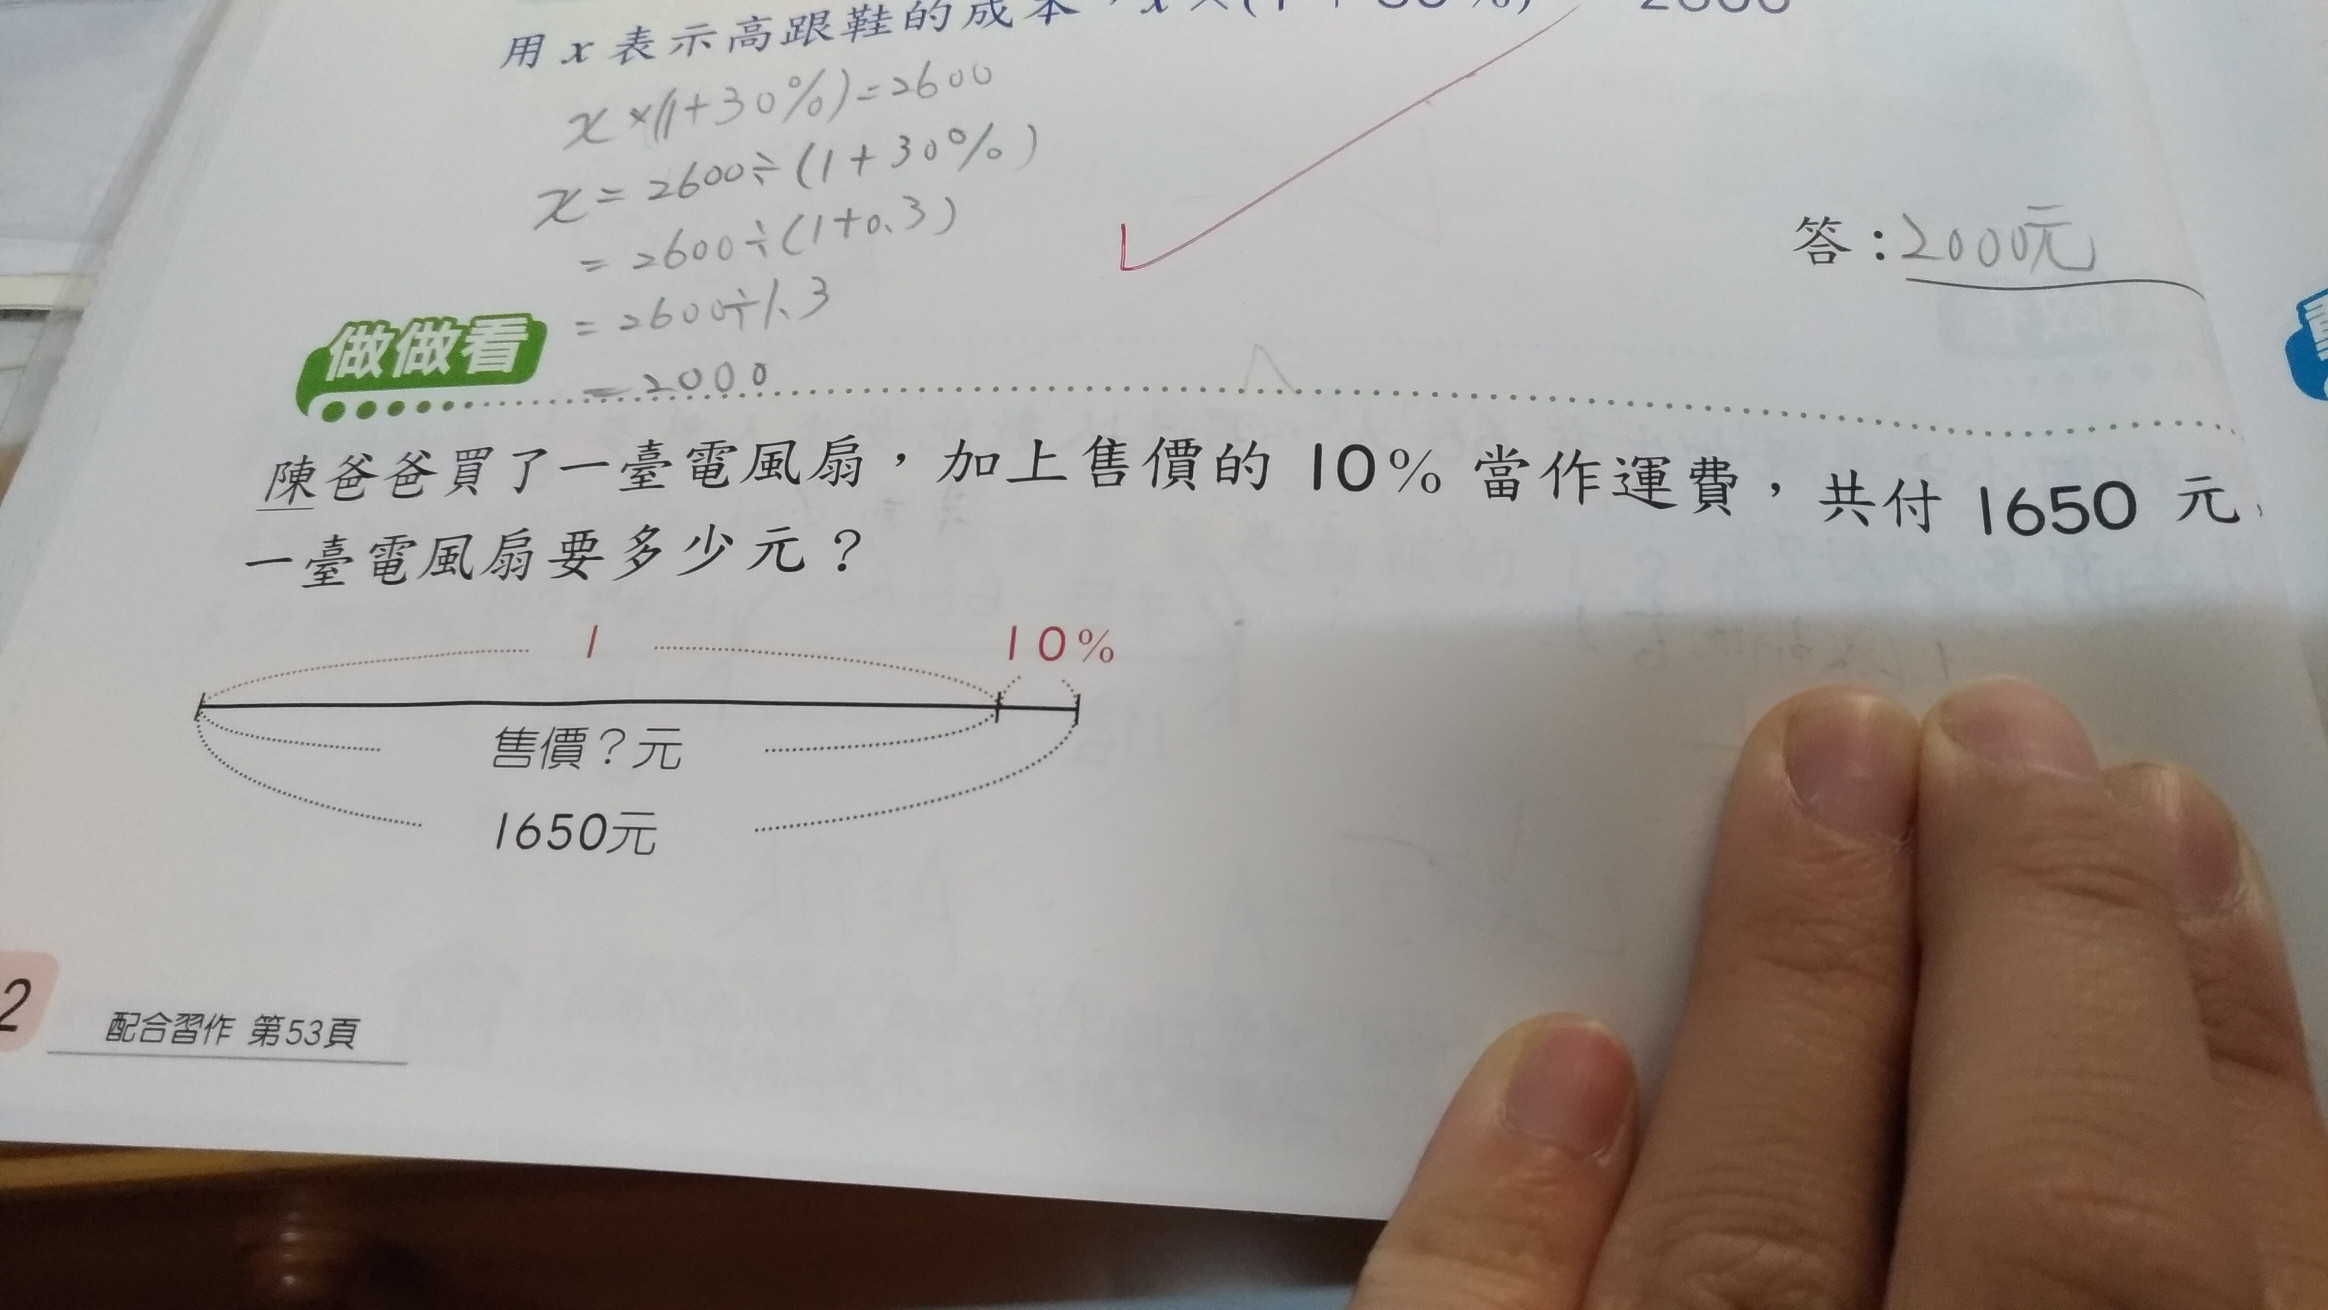 用 x 表示高跟鞋的成本，x×(1+30%)
x×(1+30%)=2600
x=2600÷(1+30%)
=2600÷(1+0.3)
=2600÷1.3
=2000
答：2000元
做做看
陳爸爸買了一臺電風扇，加上售價的 10% 當作運費，共付 1650 元，
一臺電風扇要多少元？
1
10%
售價？元
1650元
2
配合習作 第53頁